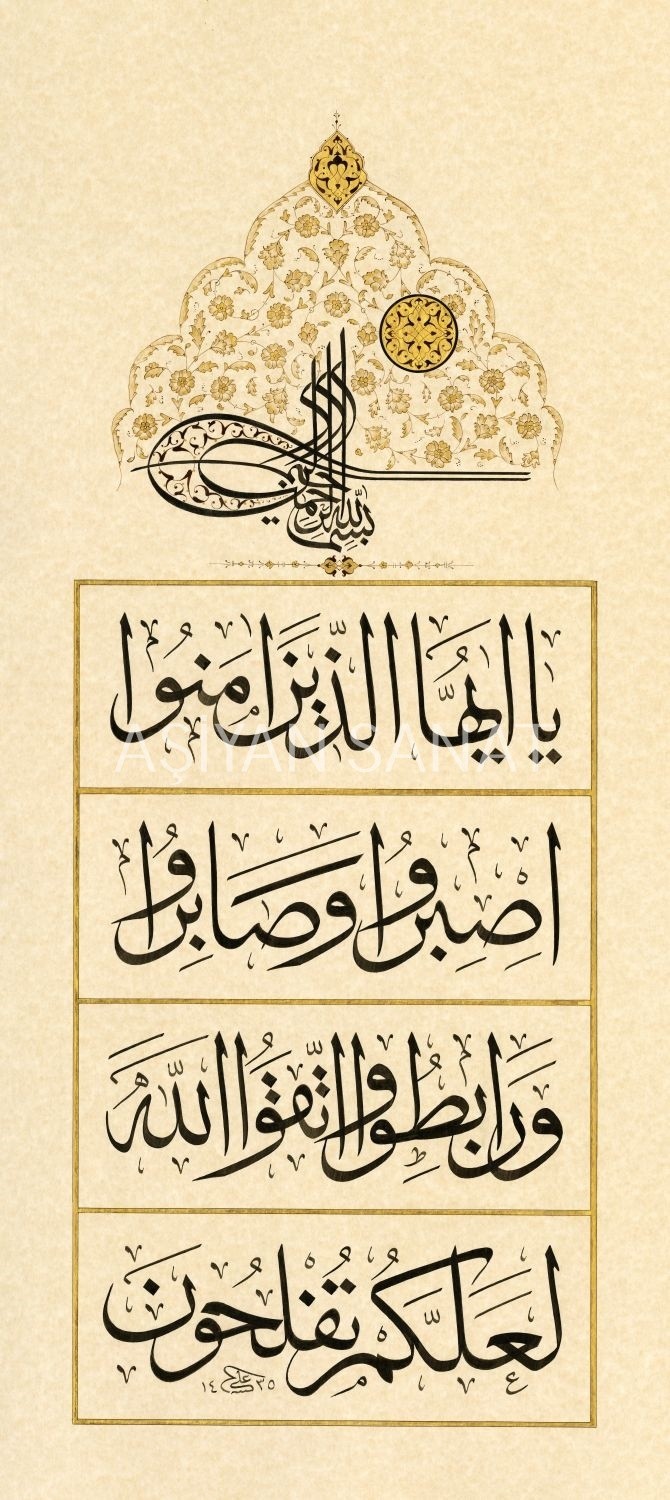 بسم الله الرحمن الرحيم
يَا اَيُّهَا الَّذِينَ اٰمَنُوا
اِصْبِرُوا وَصَابِرُوا
وَرَابِطُوا وَاتَّقُوا اللّٰهَ
لَعَلَّكُمْ تُفْلِحُونَ
علي ١٤٣٥
AŞİYAN SANAT